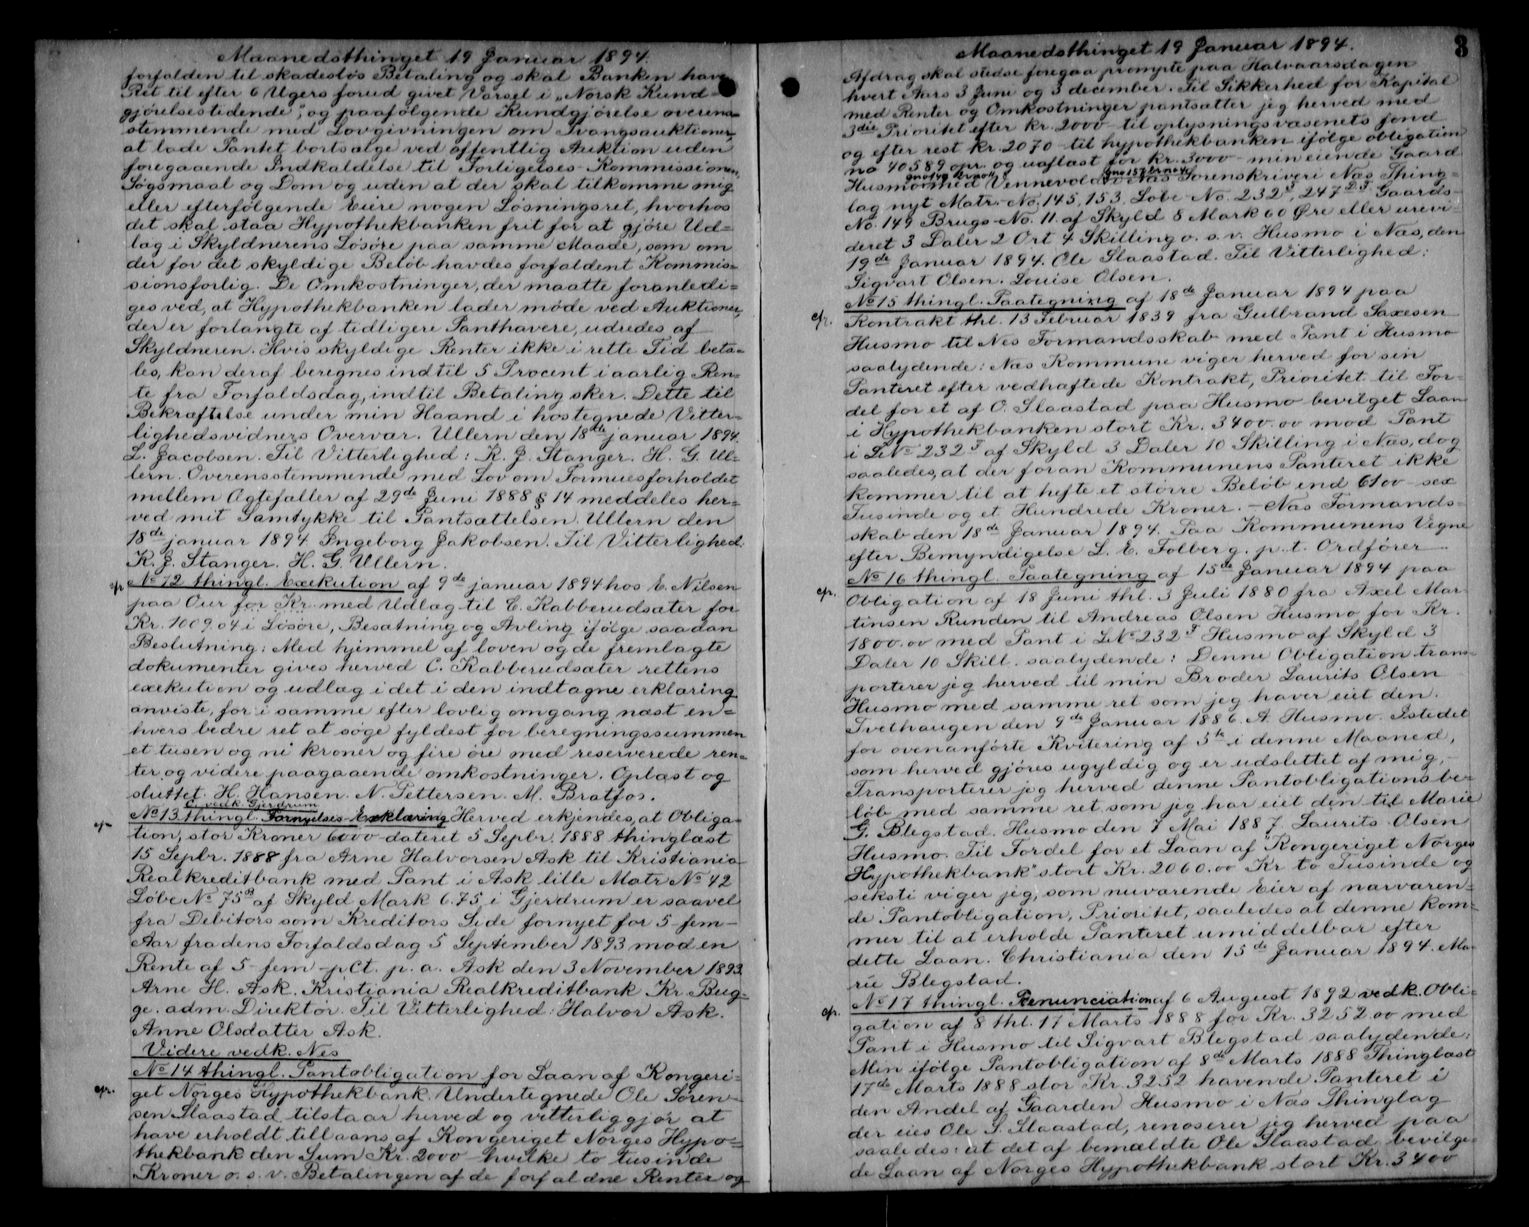 Maanedsthinget 19 Januar 1894.
forfalden til skadesløs Betaling og skal Banken have
Ret til efter 6 Ugers forud givet Varsel i „Norsk Kund-
gjørelsestidende", og paafølgende Kundgjørelse overens-
stemmende med Lovgivningen om Tvangsauktioner,
at lade Pantet bortsælge ved offentlig Auktion uden
foregaaende Indkaldelse til Forligelses-Kommissionen,
Søgsmaal og Dom og uden at der skal tilkomme mig
eller efterfølgende Eiere nogen Løsningsret, hvorhos
det skal staa Hypothekbanken frit for at gjøre Ud-
læg i Skyldnerens Løsøre paa samme Maade, som om
der for det skyldige Beløb havdes forfaldent Kommis-
sionsforlig. De Omkostninger, der maatte foranledi-
ges ved, at Hypothekbanken lader møde ved Auktioner,
der er forlangte af tidligere Panthavere, udredes af
Skyldneren. Hvis skyldige Renter ikke i rette Tid beta-
les, kan deraf beregnes indtil 5 Procent i aarlig Ren-
te fra Forfaldsdag, indtil Betaling sker. Dette til
Bekræftelse under min Haand i hostegnede Vitter-
lighedsvidners Overvær. Ullern den 18de januar 1894.
L. Jacobsen. Til Vitterlighed: K. J. Stanger. H. G. Ul-
lern. Overensstemmende med Lov om Formuesforholdet
mellem Ægtefæller af 29de Juni 1888 § 14 meddeles her-
ved mit Samtykke til Pantsættelsen. Ullern den
18de januar 1894. Ingeborg Jakobsen. Til Vitterlighed:
K. J. Stanger. H. G. Ullern.
cfr. No 12 thingl. Exekution af 9de januar 1894 hos E. Nilsen
paa Our for Kr. med Udlæg til C. Kabberudsæter for
Kr. 1009.04 i Løsøre, Besætning og Avling ifølge saadan
Beslutning: Med hjemmel af loven og de fremlagte
dokumenter gives herved C. Kabberudsæter rettens
exekution og udlæg i det i den indtagne erklæring
anviste, for i samme efter lovlig omgang næst en-
hvers bedre ret at søge fyldest for beregningssummen
et tusen og ni kroner og fire øre med reserverede ren-
ter og videre paagaaende omkostninger. Oplæst og
sluttet. H. Hansen. N. Pettersen. M. Bratfos.
C. vedk. Gjerdrum
cfr. No 13 thingl. Fornyelses-Erklæring Herved erkjendes, at Obliga-
tion, stor Kroner 6000 dateret 5 Sepbr. 1888 thinglæst
15 Sepbr. 1888 fra Arne Halvorsen Ask til Kristiania
Realkreditbank med Pant i Ask lille Matr No 42
Løbe No 75a af Skyld Mark 6.75, i Gjerdrum er saavel
fra Debitors som Kreditors Side fornyet for 5 fem
Aar fra dens Forfaldsdag 5 September 1893 mod en
Rente af 5-fem-pCt. p. a. Ask den 3 November 1893.
Arne H. Ask. Kristiania Realkreditbank Kr. Bug-
ge. adm. Direktør. Til Vitterlighed: Halvor Ask.
Anne Olsdatter Ask.
Videre vedk. Nes
cfr. No 14 thingl. Pantobligation for Laan af Kongeri-
get Norges Hypothekbank. Undertegnede Ole Søren-
sen Slaastad tilstaar herved og vitterliggjør at
have erholdt tillaans af Kongeriget Norges Hypo-
thekbank den Sum Kr. 2000 hvilke to tusinde
Kroner o. s. v. Betalingen af de forfaldne Renter og
Maanedsthinget 19 Januar 1894. 3
Afdrag skal stedse foregaa prompte paa Halvaarsdagen
hvert Aars 3 Juni og 3 december. Til Sikkerhed for Kapital
med Renter og Omkostninger pantsætter jeg herved med
3die Prioritet efter kr. 2000 til oplysningsvæsenets fond
og efter rest kr. 2070 til hypothekbanken ifølge obligation
no 40589 opr. og uaflæst for kr. 3000 min eiende Gaard
Husmo med Vennevold i Næs Sorenskriveri Nes Thing-
lag nyt Matr.-No. 145, 153, Løbe-No. 232, 247 Gaards-
No. 149 Brugs-No. 11. af Skyld 8 Mark 60 Øre eller urevi-
deret 3 Daler 2 Ort 4 Skilling o. s. v. Husmo i Næs, den
19de Januar 1894. Ole Slaastad. Til Vitterlighed:
Sigvart Olsen. Louise Olsen.
cfr. No 15 thingl. Paategning af 18de Januar 1894 paa
Kontrakt thl. 13 Februar 1839 fra Gulbrand Saxesen
Husmo til Nes Formandsskab med Pant i Husmo
saalydende: Næs Kommune viger herved for sin
Panteret efter vedhæftede Kontrakt, Prioritet til For-
del for et af O. Slaastad paa Husmo bevilget Laan
i Hypothekbanken stort Kr. 3400.00 mod Pant
i LNo 232 af Skyld 3 Daler 10 Skilling i Næs, dog
saaledes, at der foran Kommunens Panteret ikke
kommer til at hefte et større Beløb end 6100-sex
Tusinde og et Hundrede Kroner. – Næs Formands-
skab den 18de Januar 1894. Paa Kommunens Vegne
efter Bemyndigelse L. E. Tolberg. p. t. Ordfører
cfr. No 16 thingl. Paategning af 15de Januar 1894 paa
Obligation af 18 Juni thl. 3 Juli 1880 fra Axel Mar-
tinsen Runden til Andreas Olsen Husmo for Kr.
1800.00 med Pant i LNo 232 Husmo af Skyld 3
Daler 10 Skill. saalydende: Denne Obligation trans-
porterer jeg herved til min Broder Laurits Olsen
Husmo med samme ret som jeg haver eiet den.
Tvethaugen den 9de Januar 1886. A. Husmo. Istedet
for ovenanførte Kvitering af 5te i denne Maaned,
som herved gjøres ugyldig og er udslettet af mig, –
Transporterer jeg herved denne Pantobligations be-
løb med samme ret som jeg har eiet den til Marie
G. Blegstad. Husmo den 7 Mai 1887. Laurits Olsen
Husmo. Til Fordel for et Laan af Kongeriget Norges
Hypothekbank stort Kr. 2060.00 Kr to Tusinde og
seksti viger jeg, som nuværende Eier af nærværen-
de Pantobligation, Prioritet, saaledes at denne kom-
mer til at erholde Panteret umiddelbar efter
dette Laan. Christiania den 15de Januar 1894. Ma-
rie Blegstad.
cfr. No 17 thingl. Renunciation af 6 August 1892 vedk. Obli-
gation af 8 thl. 17 Marts 1888 for Kr. 3252.00 med
Pant i Husmo til Sigvart Blegstad saalydende:
Min ifølge Pantobligation af 8de Marts 1888 Thinglæst
17de Marts 1888 stor Kr. 3252 havende Panteret i
den Andel af Gaarden Husmo i Næs Thinglag
der eies Ole S. Slaastad, renoserer jeg herved paa
saaledes: at det af bemældte Ole Slaastad bevilge-
de Laan af Norges Hypothekbank stort Kr. 3400